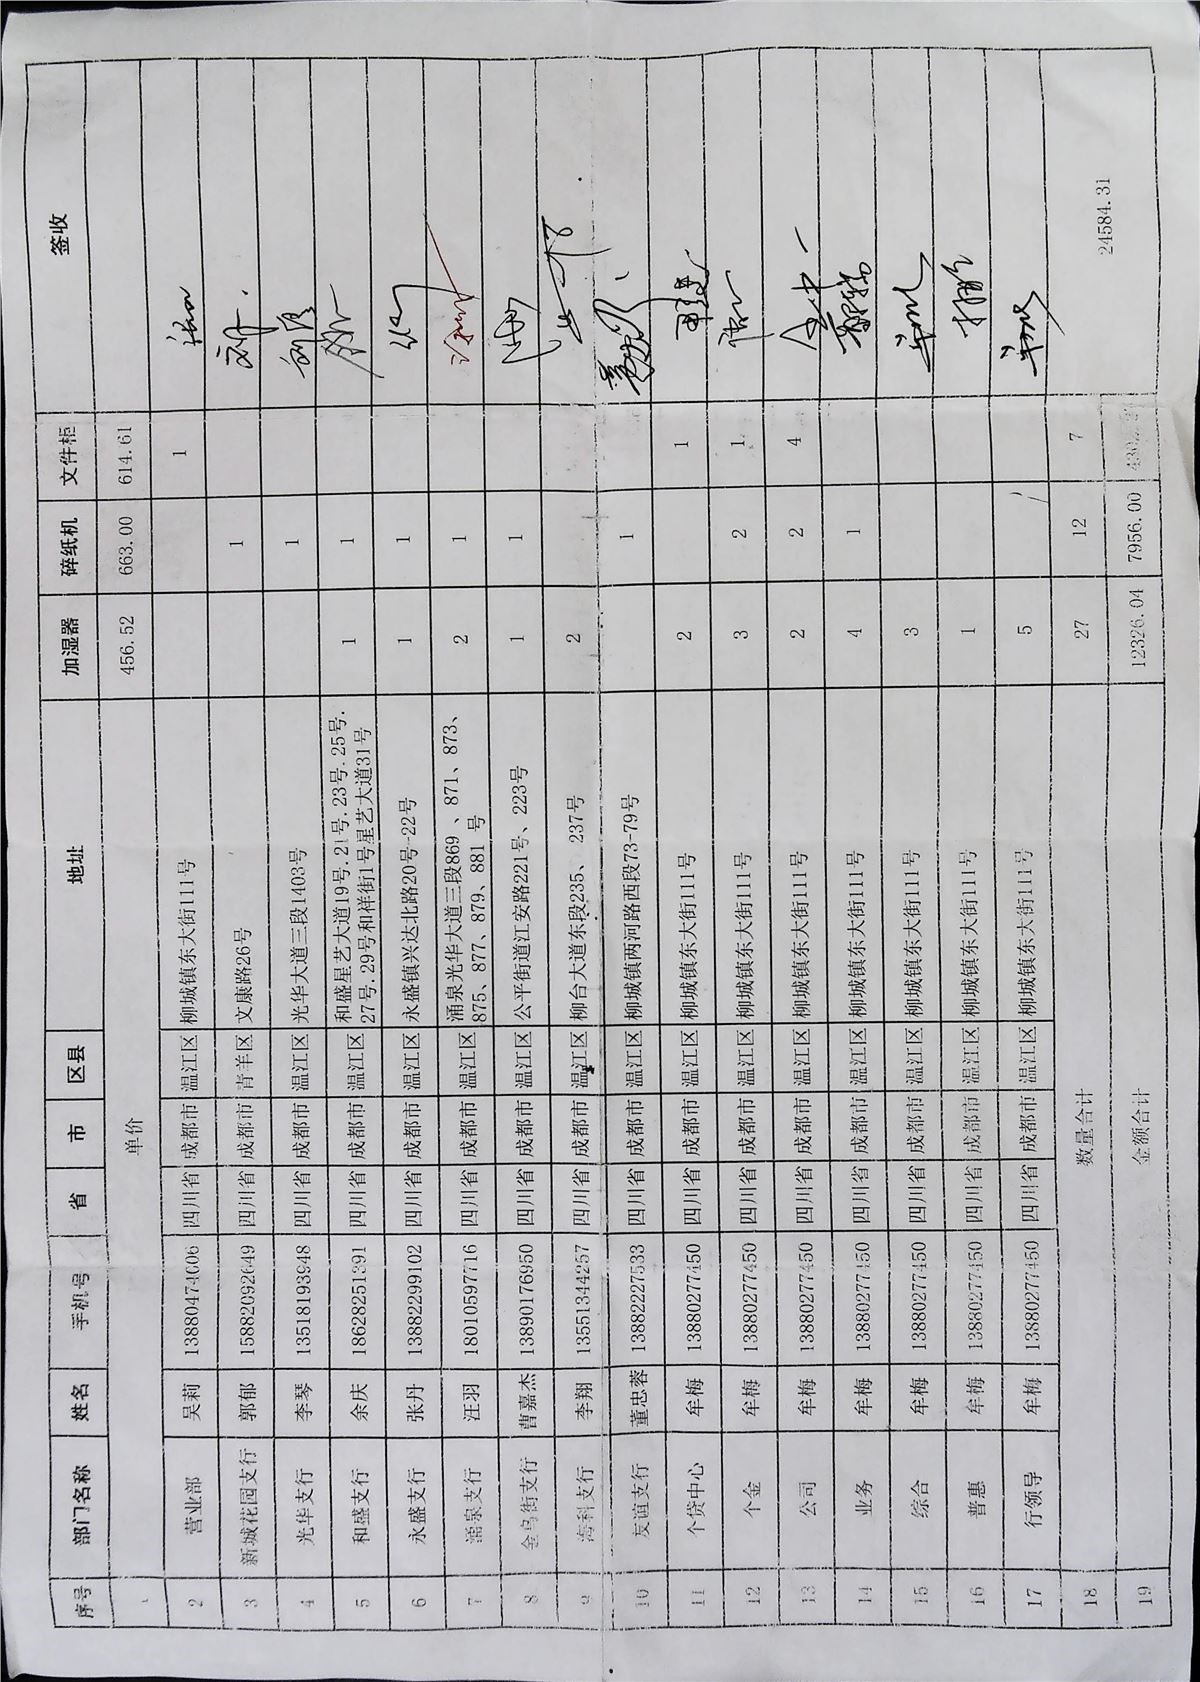 序号 部门名称 姓名 手机号 省 市 区县 地址 加湿器 碎纸机 文件柜 签收
1 单价 456.52 663.00 614.61
2 营业部 吴莉 13880474606 四川省 成都市 温江区 柳城镇东大街111号 1
3 新城花园支行 郭郁 15882092649 四川省 成都市 青羊区 文康路26号 1
4 光华支行 李琴 13518193948 四川省 成都市 温江区 光华大道三段1403号 1
5 和盛支行 余庆 18628251391 四川省 成都市 温江区 和盛星艺大道19号.21号.23号.25号.
27号.29号和祥街1号星艺大道31号 1 1
6 永盛支行 张丹 13882299102 四川省 成都市 温江区 永盛镇兴达北路20号-22号 1 1
7 涌泉支行 汪羽 18010597716 四川省 成都市 温江区 涌泉光华大道三段869 、871、873、
875、877、879、881 号 2 1
8 金乌街支行 曹嘉杰 13890176950 四川省 成都市 温江区 公平街道江安路221号、223号 1 1
9 海科支行 李翔 13551344257 四川省 成都市 温江区 柳台大道东段235、 237号 2
10 友谊支行 董忠蓉 13882227533 四川省 成都市 温江区 柳城镇两河路西段73-79号 1
11 个贷中心 牟梅 13880277450 四川省 成都市 温江区 柳城镇东大街111号 2 1
12 个金 牟梅 13880277450 四川省 成都市 温江区 柳城镇东大街111号 3 2 1
13 公司 牟梅 13880277450 四川省 成都市 温江区 柳城镇东大街111号 2 2 4
14 业务 牟梅 13880277450 四川省 成都市 温江区 柳城镇东大街111号 4 1
15 综合 牟梅 13880277450 四川省 成都市 温江区 柳城镇东大街111号 3
16 普惠 牟梅 13880277450 四川省 成都市 温江区 柳城镇东大街111号 1
17 行领导 牟梅 13880277450 四川省 成都市 温江区 柳城镇东大街111号 5
18 数量合计 27 12 7
19 金额合计 12326.04 7956.00 24584.31